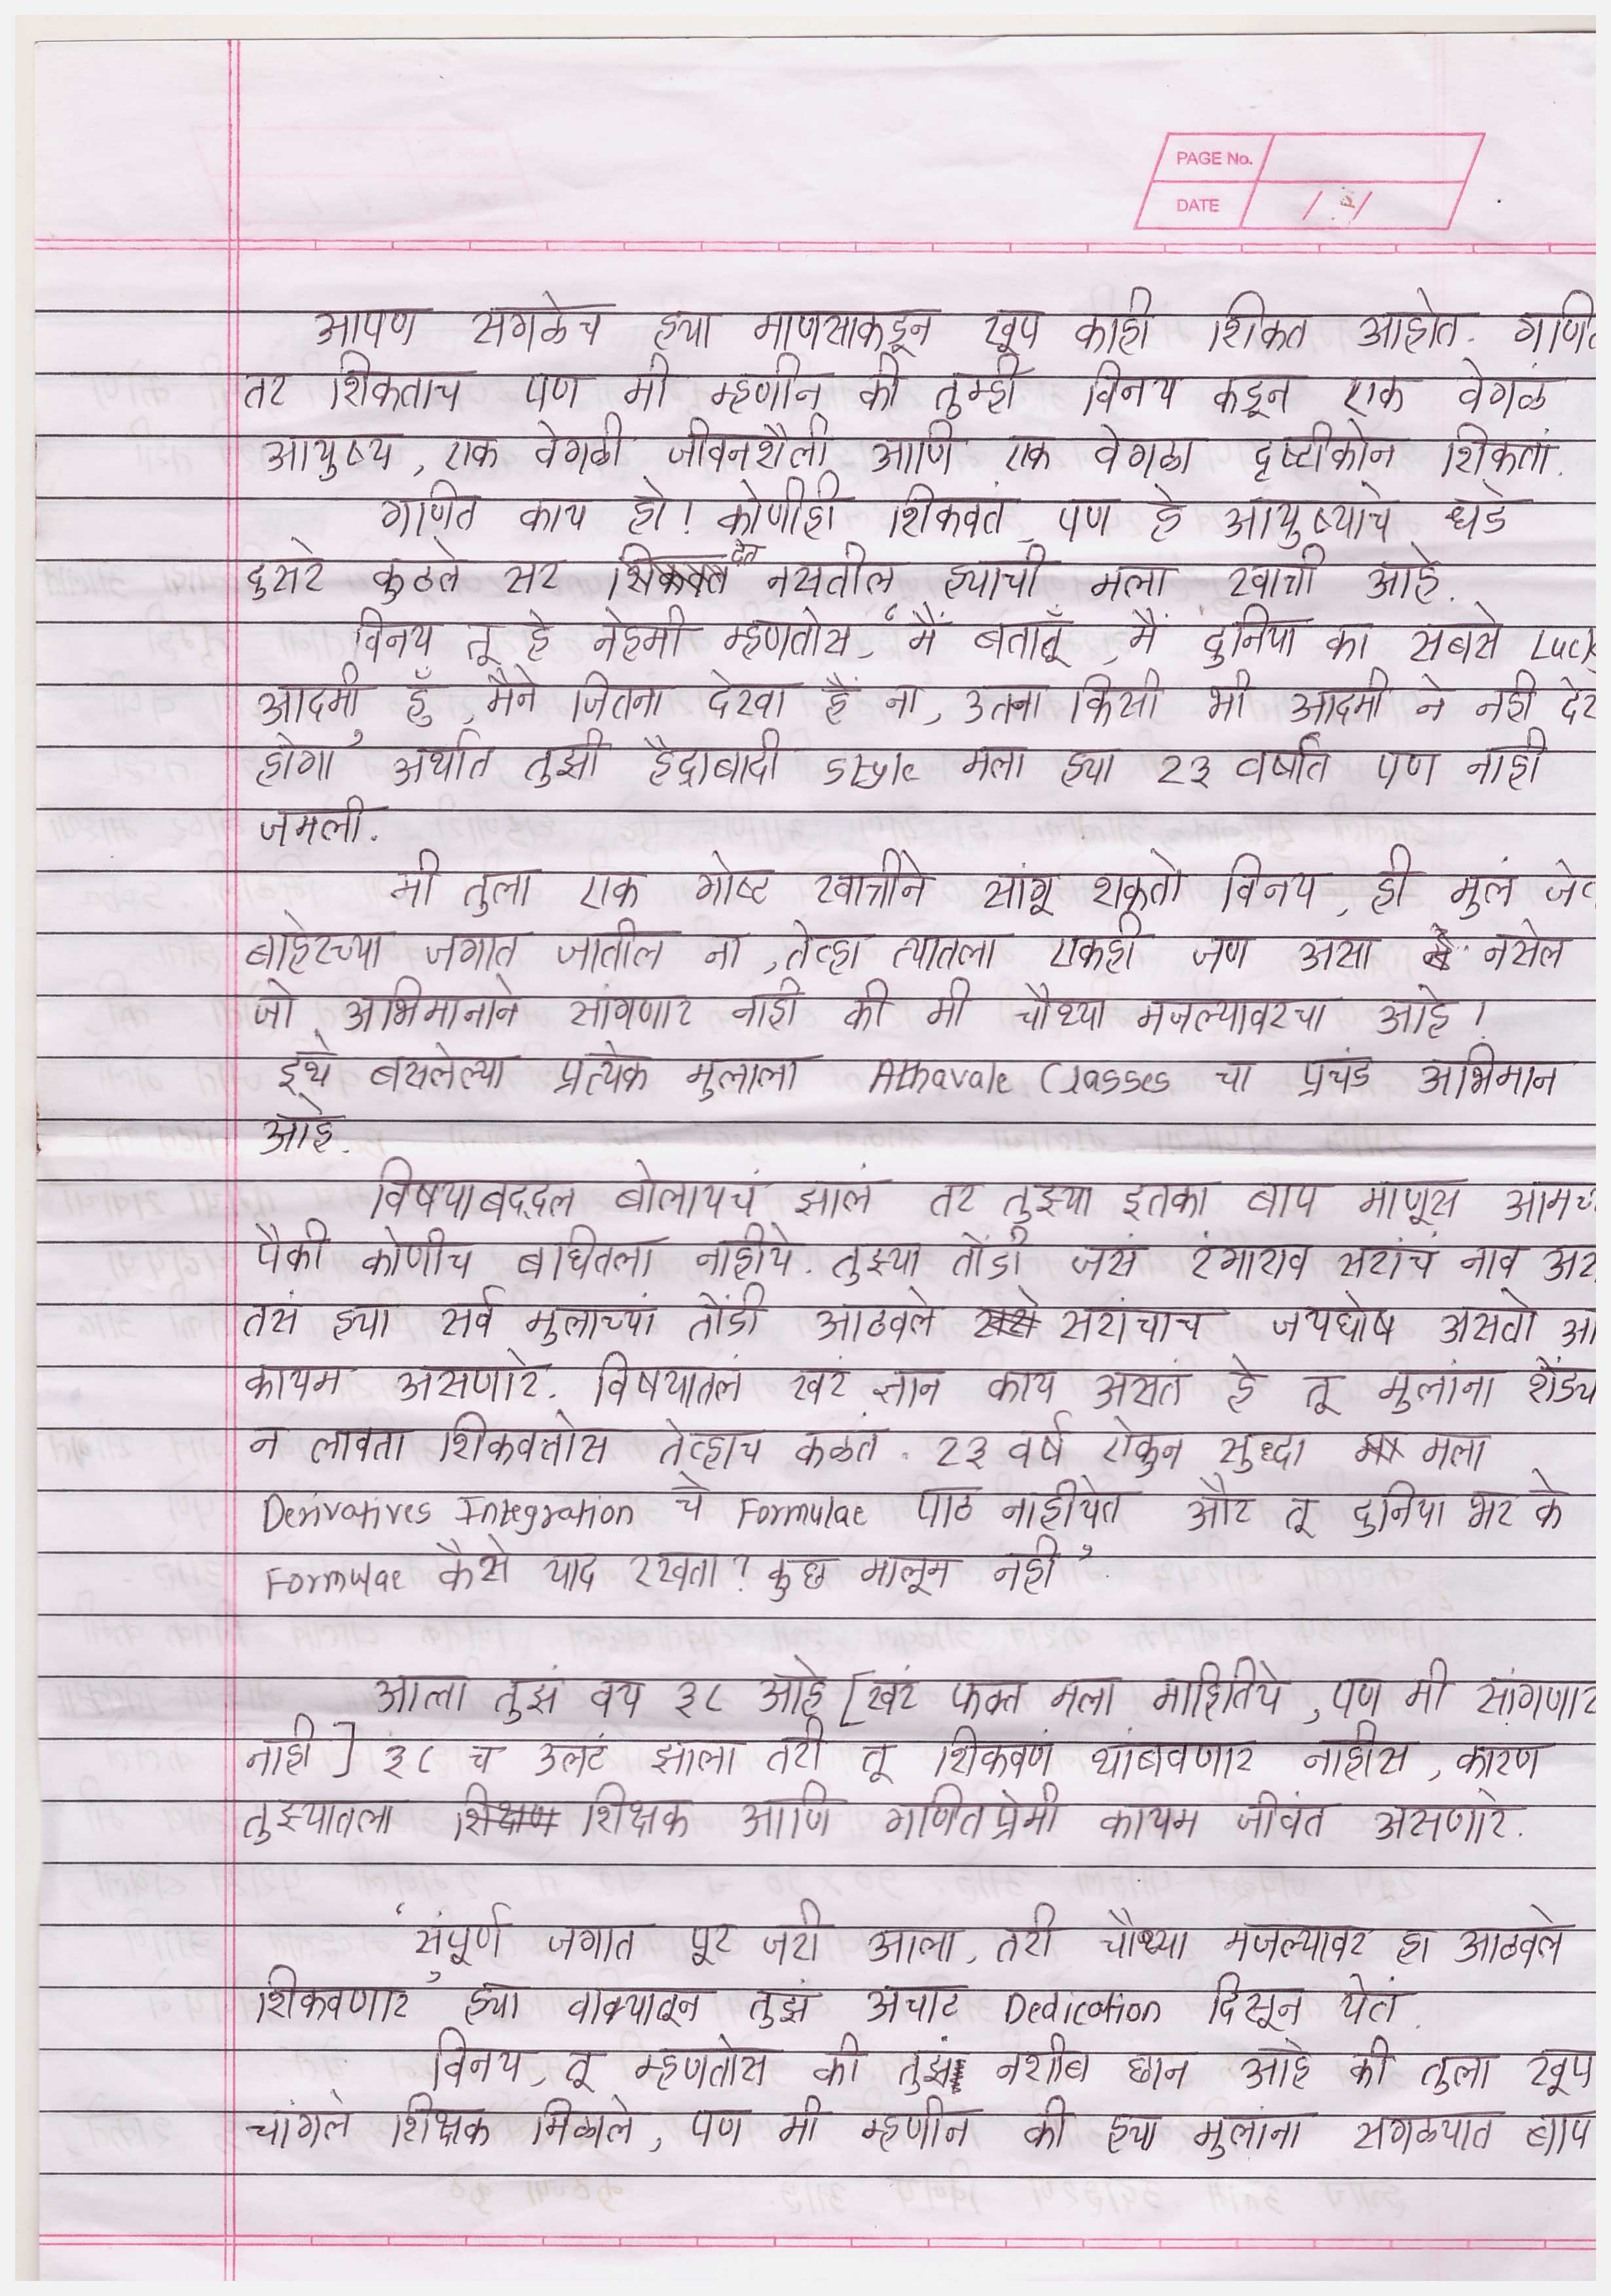 PAGE No.
DATE / /
आपण सगळेच ह्या माणसाकडून खूप काही शिकत आहोत. गणि
तर शिकताच पण मी म्हणीन की तुम्ही विनय कडून एक वेगळं
आयुष्य, एक वेगळी जीवनशैली आणि एक वेगळा दृष्टीकोन शिकतां.
गणित काय हो! कोणीही शिकवतं पण हे आयुष्याचे धडे
दुसरे कुठले सर देत नसतील ह्याची मला खात्री आहे.
विनय तू हे नेहमी म्हणतोस, 'मैं बताऊँ, मैं दुनिया का सबसे Luck
आदमी हूँ, मैने जितना देखा हैं ना, उतना किसी भी आदमी ने नही दे
होगा' अर्थात तुझी हैद्राबादी style मला ह्या २३ वर्षात पण नाही
जमली.
मी तुला एक गोष्ट खात्रीने सांगू शकतो विनय, ही मुलं जे
बाहेरच्या जगात जातील ना, तेव्हा त्यातला एकही जण असा नसेल
जो अभिमानाने सांगणार नाही की मी चौथ्या मजल्यावरचा आहे!
इथे बसलेल्या प्रत्येक मुलाला Athavale Classes चा प्रचंड अभिमान
आहे.
विषयाबद्दल बोलायचं झालं तर तुझ्या इतका बाप माणूस आमच
पैकी कोणीच बघितला नाहीये. तुझ्या तोंडी जसं रंगाराव सरांचं नाव अस
तसं ह्या सर्व मुलाच्यां तोंडी आठवले सरांचाच जयघोष असतो आ
कायम असणारे. विषयातलं खरं ज्ञान काय असतं हे तू मुलांना शेंड्य
न लावता शिकवतोस तेव्हाच कळतं. २३ वर्ष ऐकुन सुद्धा मला
Derivatives Integration चे Formulae पाठ नाहीयेत और तू दुनिया भर के
Formulae कैसे याद रखता? कुछ मालूम नही'.
आला तुझं वय ३८ आहे [खरं फक्त मला माहितिये, पण मी सांगणार
नाही] ३८ च उलटं झाला तरी तू शिकवणं थांबवणार नाहीस, कारण
तुझ्यातला शिक्षक आणि गणितप्रेमी कायम जीवंत असणारे.
'संपूर्ण जगात पूर जरी आला, तरी चौथ्या मजल्यावर हा आठवले
शिकवणार' ह्या वाक्यातून तुझं अचाट Dedication दिसून येतं.
विनय, तू म्हणतोस की तुझं नशीब छान आहे की तुला खूप
चांगले शिक्षक मिळाले, पण मी म्हणीन की ह्या मुलांना सगळ्यात बाप